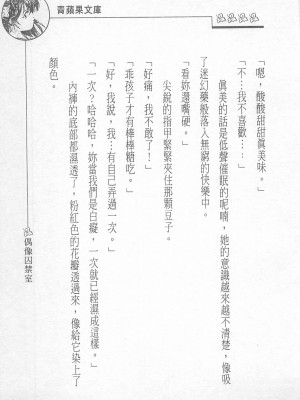 青蘋果文庫
「嗯，酸酸甜甜真美味。」
「不⋯我不喜歡⋯⋯」
真美的話是低聲催眠的呢喃，她的意識越來越不清楚，像吸
了迷幻藥般落入無窮的快樂中。
「看妳還嘴硬。」
尖銳的指甲緊緊夾住那顆豆子。
「好痛，我不敢了！」
「乖孩子才有棒棒糖吃。」
「好，我說，我⋯有自己弄過一次。」
「一次？哈哈哈，妳當我們是白癡，一次就已經濕成這樣。」
內褲的底部都濕透了，粉紅色的花瓣透過來，像給它染上了
顏色。
偶像囚禁室